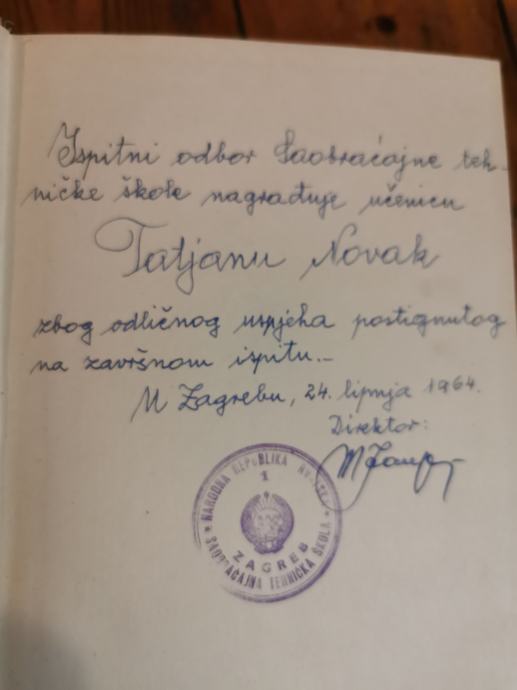 Ispitni odbor Saobraćajne teh-
ničke škole nagrađuje učenicu
Tatjanu Novak
zbog odličnog uspjeha postignutog
na završnom ispitu.-
U Zagrebu, 24. lipnja 1964.
Direktor:
NARODNA REPUBLIKA HRVATSKA
1
ZAGREB
SAOBRAĆAJNA TEHNIČKA ŠKOLA